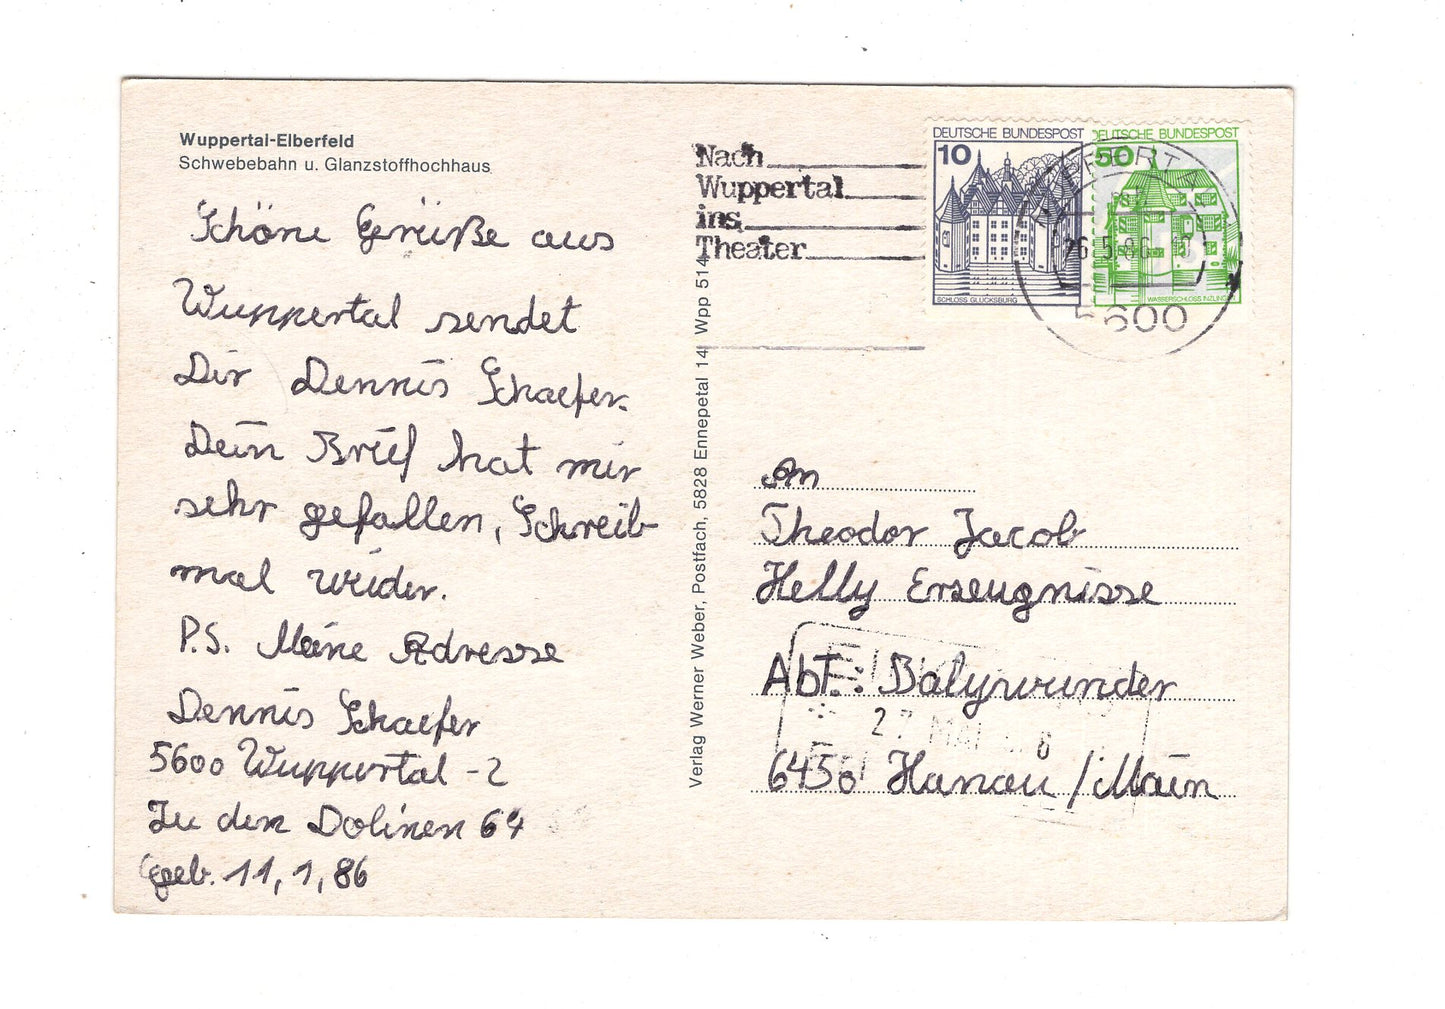 Wuppertal-Elberfeld
Schwebebahn u. Glanzstoffhochhaus
Schöne Grüße aus
Wuppertal sendet
Dir Dennis Schaefer.
Dein Brief hat mir
sehr gefallen, Schreib
mal wieder.
P.S. Meine Adresse
Dennis Schaefer
5600 Wuppertal - 2
Zu den Dolinen 64
geb. 11, 1, 86
Verlag Werner Weber, Postfach, 5828 Ennepetal 14 Wpp 514
Nach
Wuppertal
ins
Theater
DEUTSCHE BUNDESPOST
10
SCHLOSS GLÜCKSBURG
DEUTSCHE BUNDESPOST
50
WASSERSCHLOSS INZLINGEN
26.5.86
5600
An
Theodor Jacob
Helly Erseugnisse
Abt.: Balywunder
27 MAI 6
6450 Hanau / Main